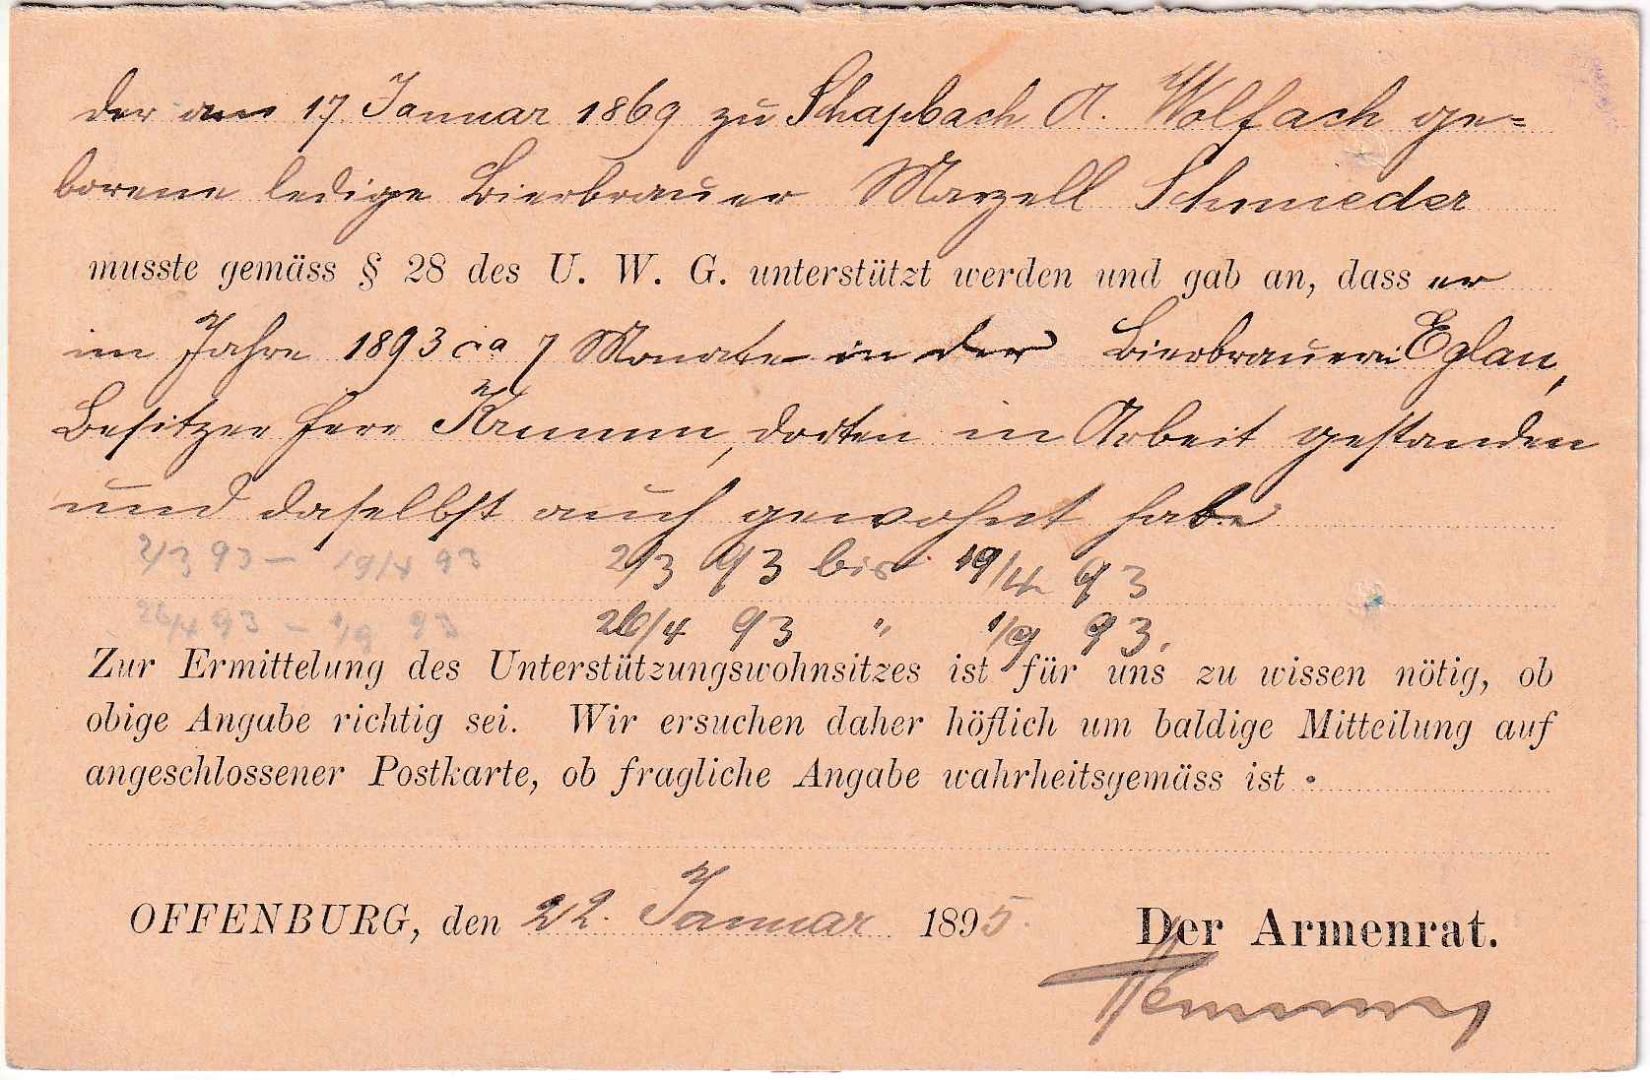 der am 17. Januar 1869 zu Schapbach A. Wolfach ge=
borene ledige Bierbrauer Marzell Schmieder
musste gemäss § 28 des U. W. G. unterstützt werden und gab an, dass er
im Jahre 1893 ca 7 Monate in der Bierbrauerei Eglau,
Besitzer Herr Krumm, dorten in Arbeit gestanden
und daselbst auch gewohnt habe
2/3 93 – 19/4 93 2/3 93 bis 19/4 93
26/4 93 – 1/9 93 26/4 93 " 1/9 93.
Zur Ermittelung des Unterstützungswohnsitzes ist für uns zu wissen nötig, ob
obige Angabe richtig sei. Wir ersuchen daher höflich um baldige Mitteilung auf
angeschlossener Postkarte, ob fragliche Angabe wahrheitsgemäss ist.
OFFENBURG, den 22. Januar 1895.
Der Armenrat.